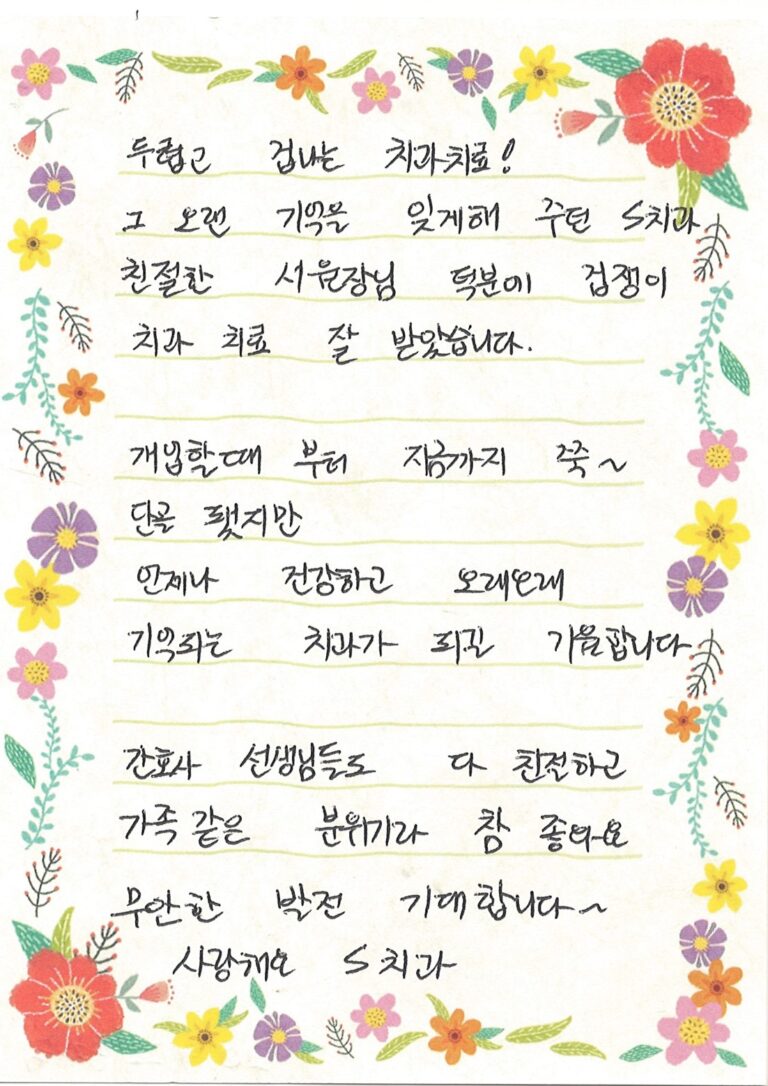 두렵고 겁나는 치과치료!
그 오랜 기억을 잊게해 주던 S치과
친절한 서원장님 덕분에 겁쟁이
치과 치료 잘 받았습니다.
개업할때 부터 지금까지 쭉~
단골 됐지만
언제나 건강하고 오래오래
기억되는 치과가 되길 기원합니다
간호사 선생님들도 다 친절하고
가족같은 분위기라 참 좋아요
무안한 발전 기대합니다~
사랑해요 S치과